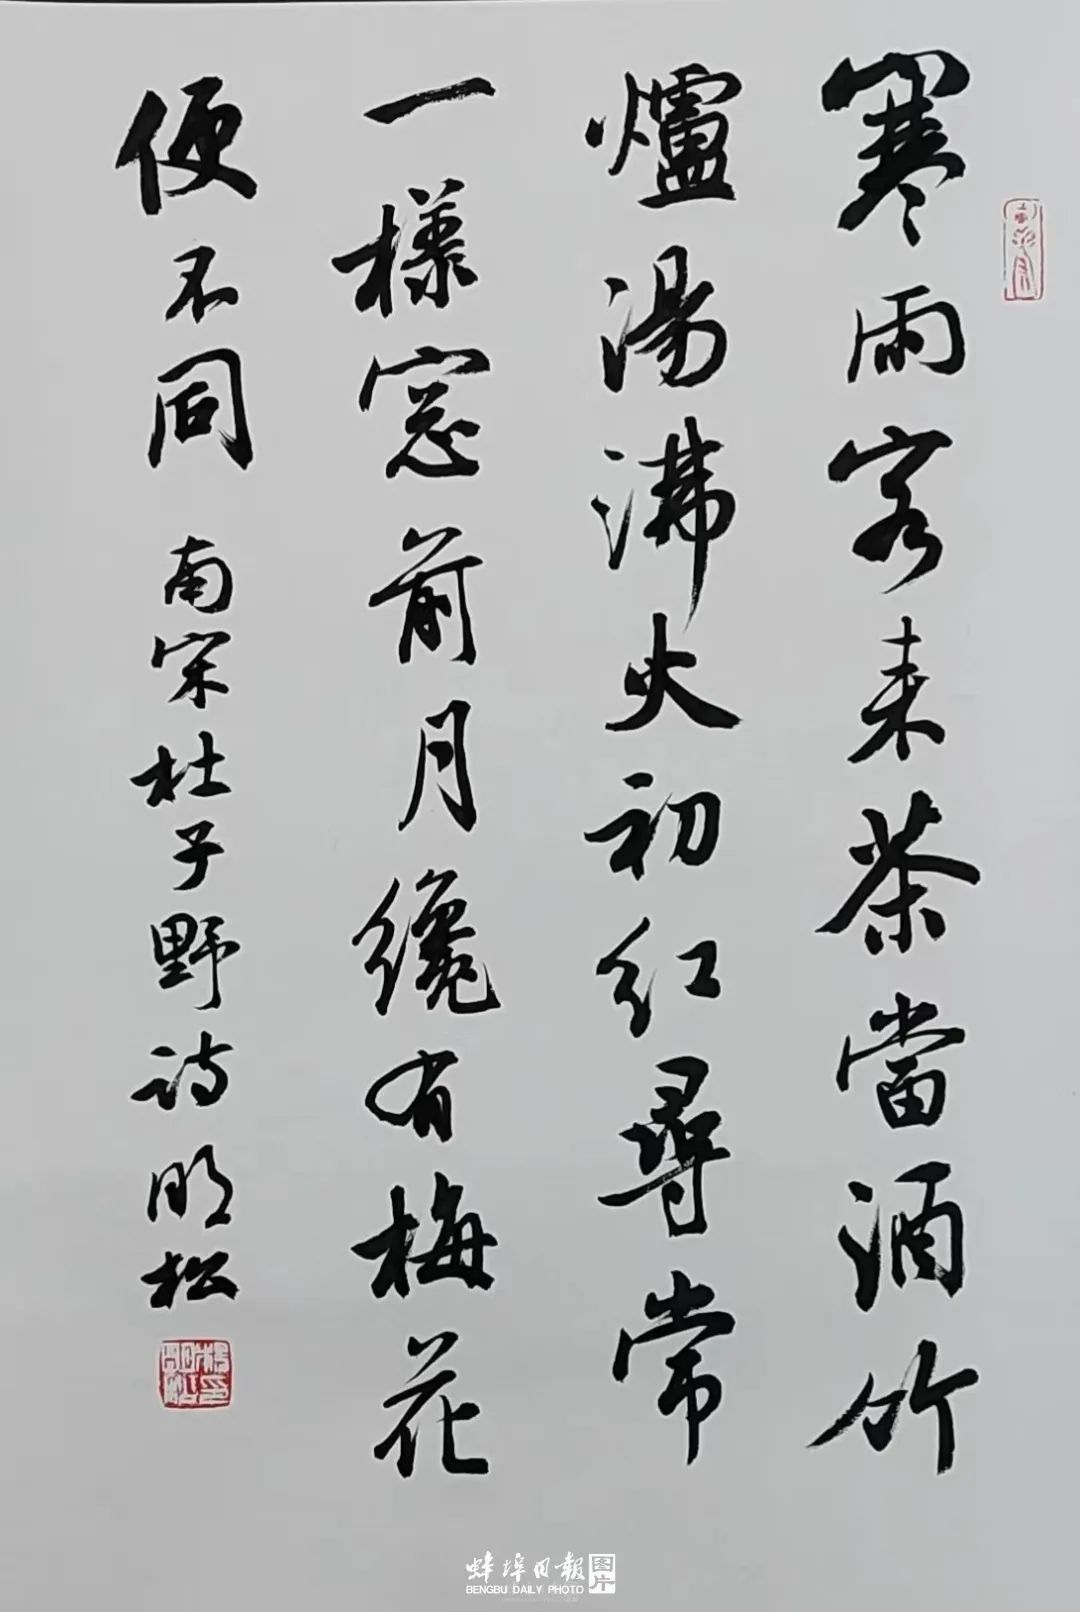 寒雨客来茶當酒竹
爐湯沸火初红尋常
一樣窓前月纔有梅花
便不同 南宋杜子野诗 明松
蚌埠日報 图片
BENGBU DAILY PHOTO